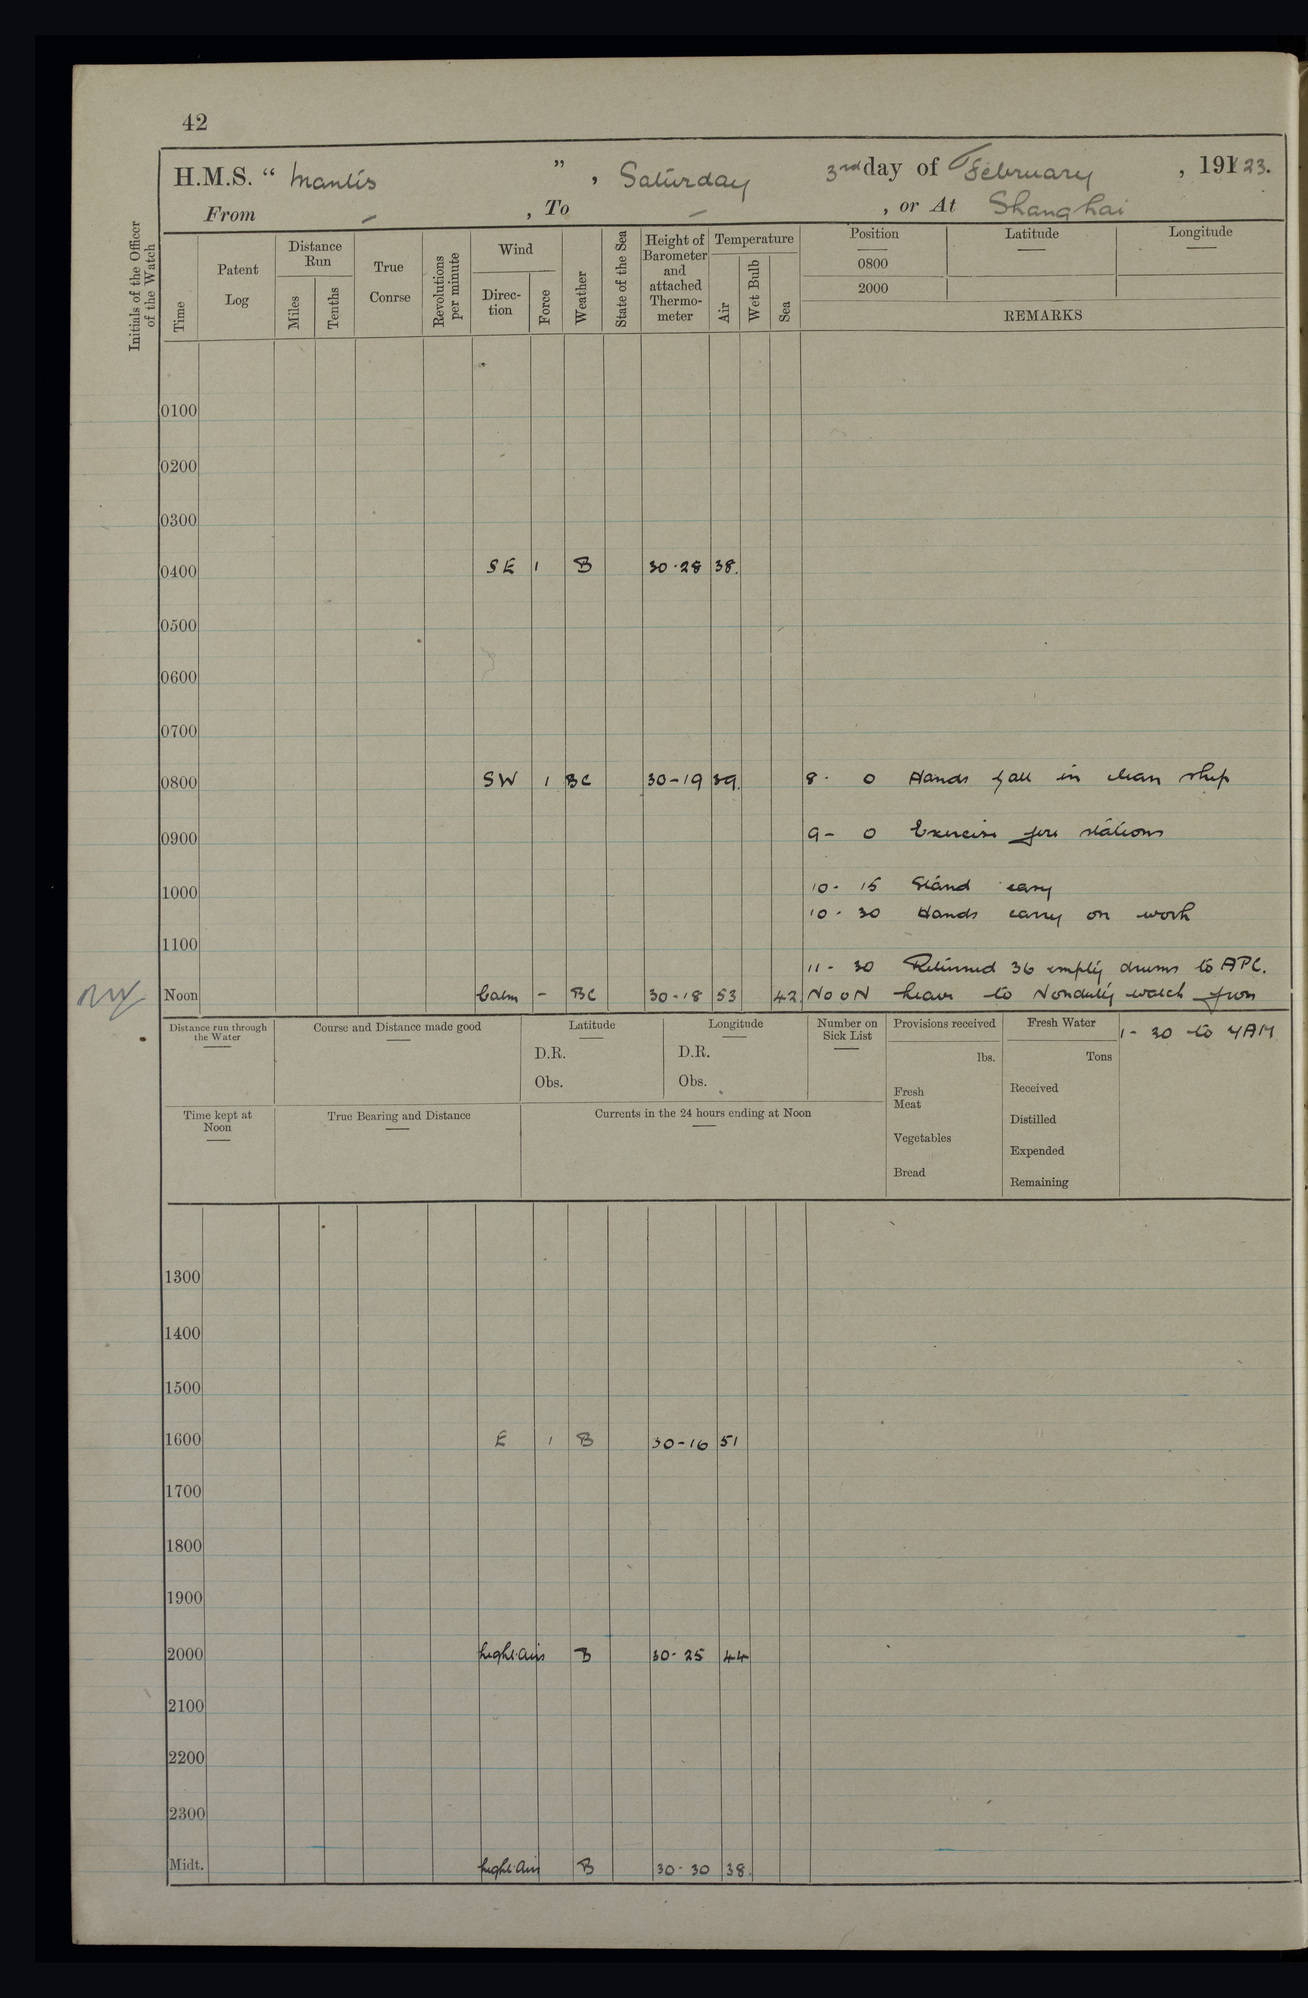 42
H.M.S. “ Mantis ” , Saturday 3rd day of February , 191 23.
From – , To – , or At Shanghai
Initials of the Officer of the Watch
Time
Patent Log
Distance Run
Miles
Tenths
True Course
Revolutions per minute
Wind
Direction
Force
Weather
State of the Sea
Height of Barometer and attached Thermometer
Temperature
Air
Wet Bulb
Sea
Position Latitude Longitude
0800
2000
REMARKS
0100
0200
0300
0400 SE 1 B 30·28 38.
0500
0600
0700
0800 SW 1 BC 30-19 39. 8· 0 Hands fall in clean ship
0900 9- 0 Exercise fire stations
1000 10- 15 Stand easy
10- 30 Hands carry on work
1100
11- 30 Returned 36 empty drums to APC.
Noon Calm - BC 30-18 53 42. NOON Leave to Nonduty watch from
1- 30 to 7AM
Distance run through the Water
Course and Distance made good
Latitude
D.R.
Obs.
Longitude
D.R.
Obs.
Number on Sick List
Provisions received
lbs.
Fresh Meat
Vegetables
Bread
Fresh Water
Tons
Received
Distilled
Expended
Remaining
Time kept at Noon
True Bearing and Distance
Currents in the 24 hours ending at Noon
1300
1400
1500
1600 E 1 B 30-16 51
1700
1800
1900
2000 Light Airs B 30-25 44
2100
2200
2300
Midt. Light Airs B 30-30 38.